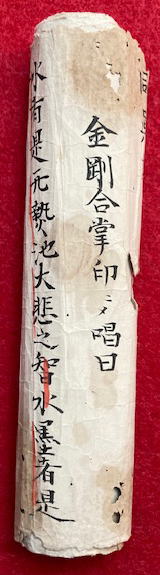 金剛合掌印ニ〆唱曰
水者是无熱池大悲之智水墨者是